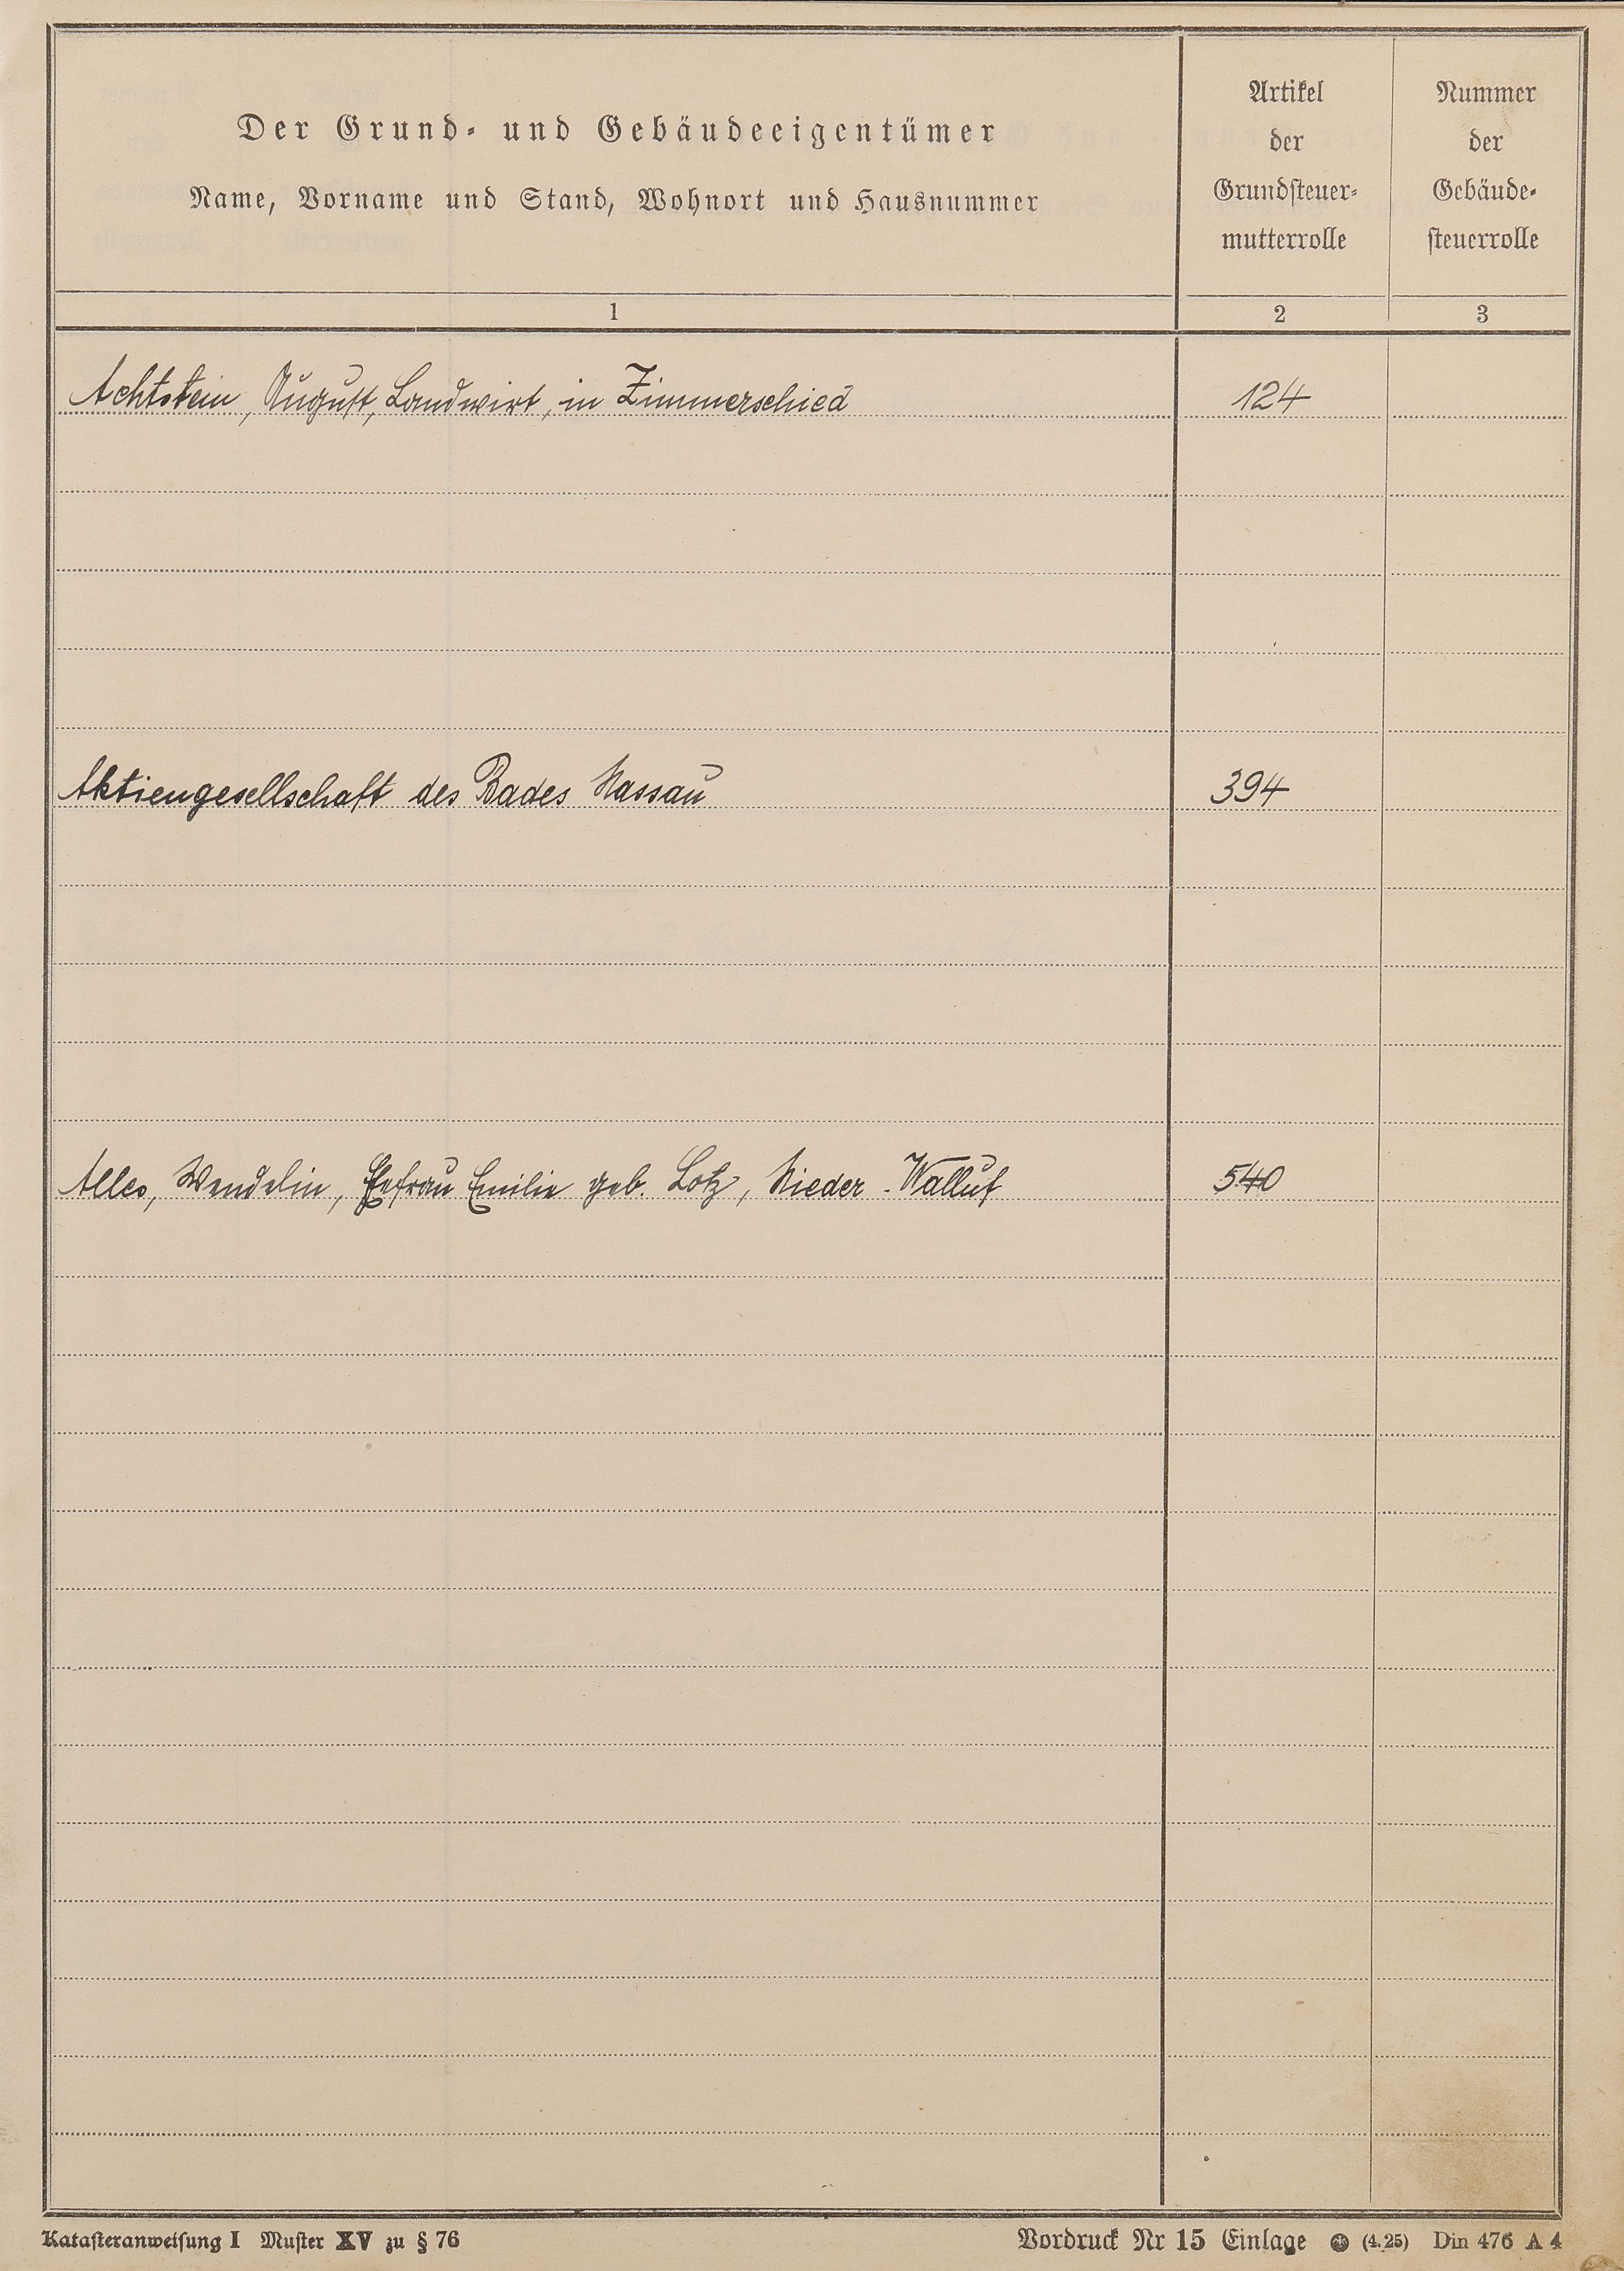 Der Grund- und Gebäudeeigentümer
Name, Vorname und Stand, Wohnort und Hausnummer
Artikel
der
Grundsteuer-
mutterrolle
Nummer
der
Gebäude-
steuerrolle
1 2 3
Achtstein, August, Landwirt, in Zimmerschied 124
Aktiengesellschaft des Bades Nassau 394
Alles, Wendelin, Ehefrau Emilie geb. Lotz, Nieder-Walluf 540
Katasteranweisung I Muster XV zu § 76
Vordruck Nr 15 Einlage (4.25) Din 476 A 4